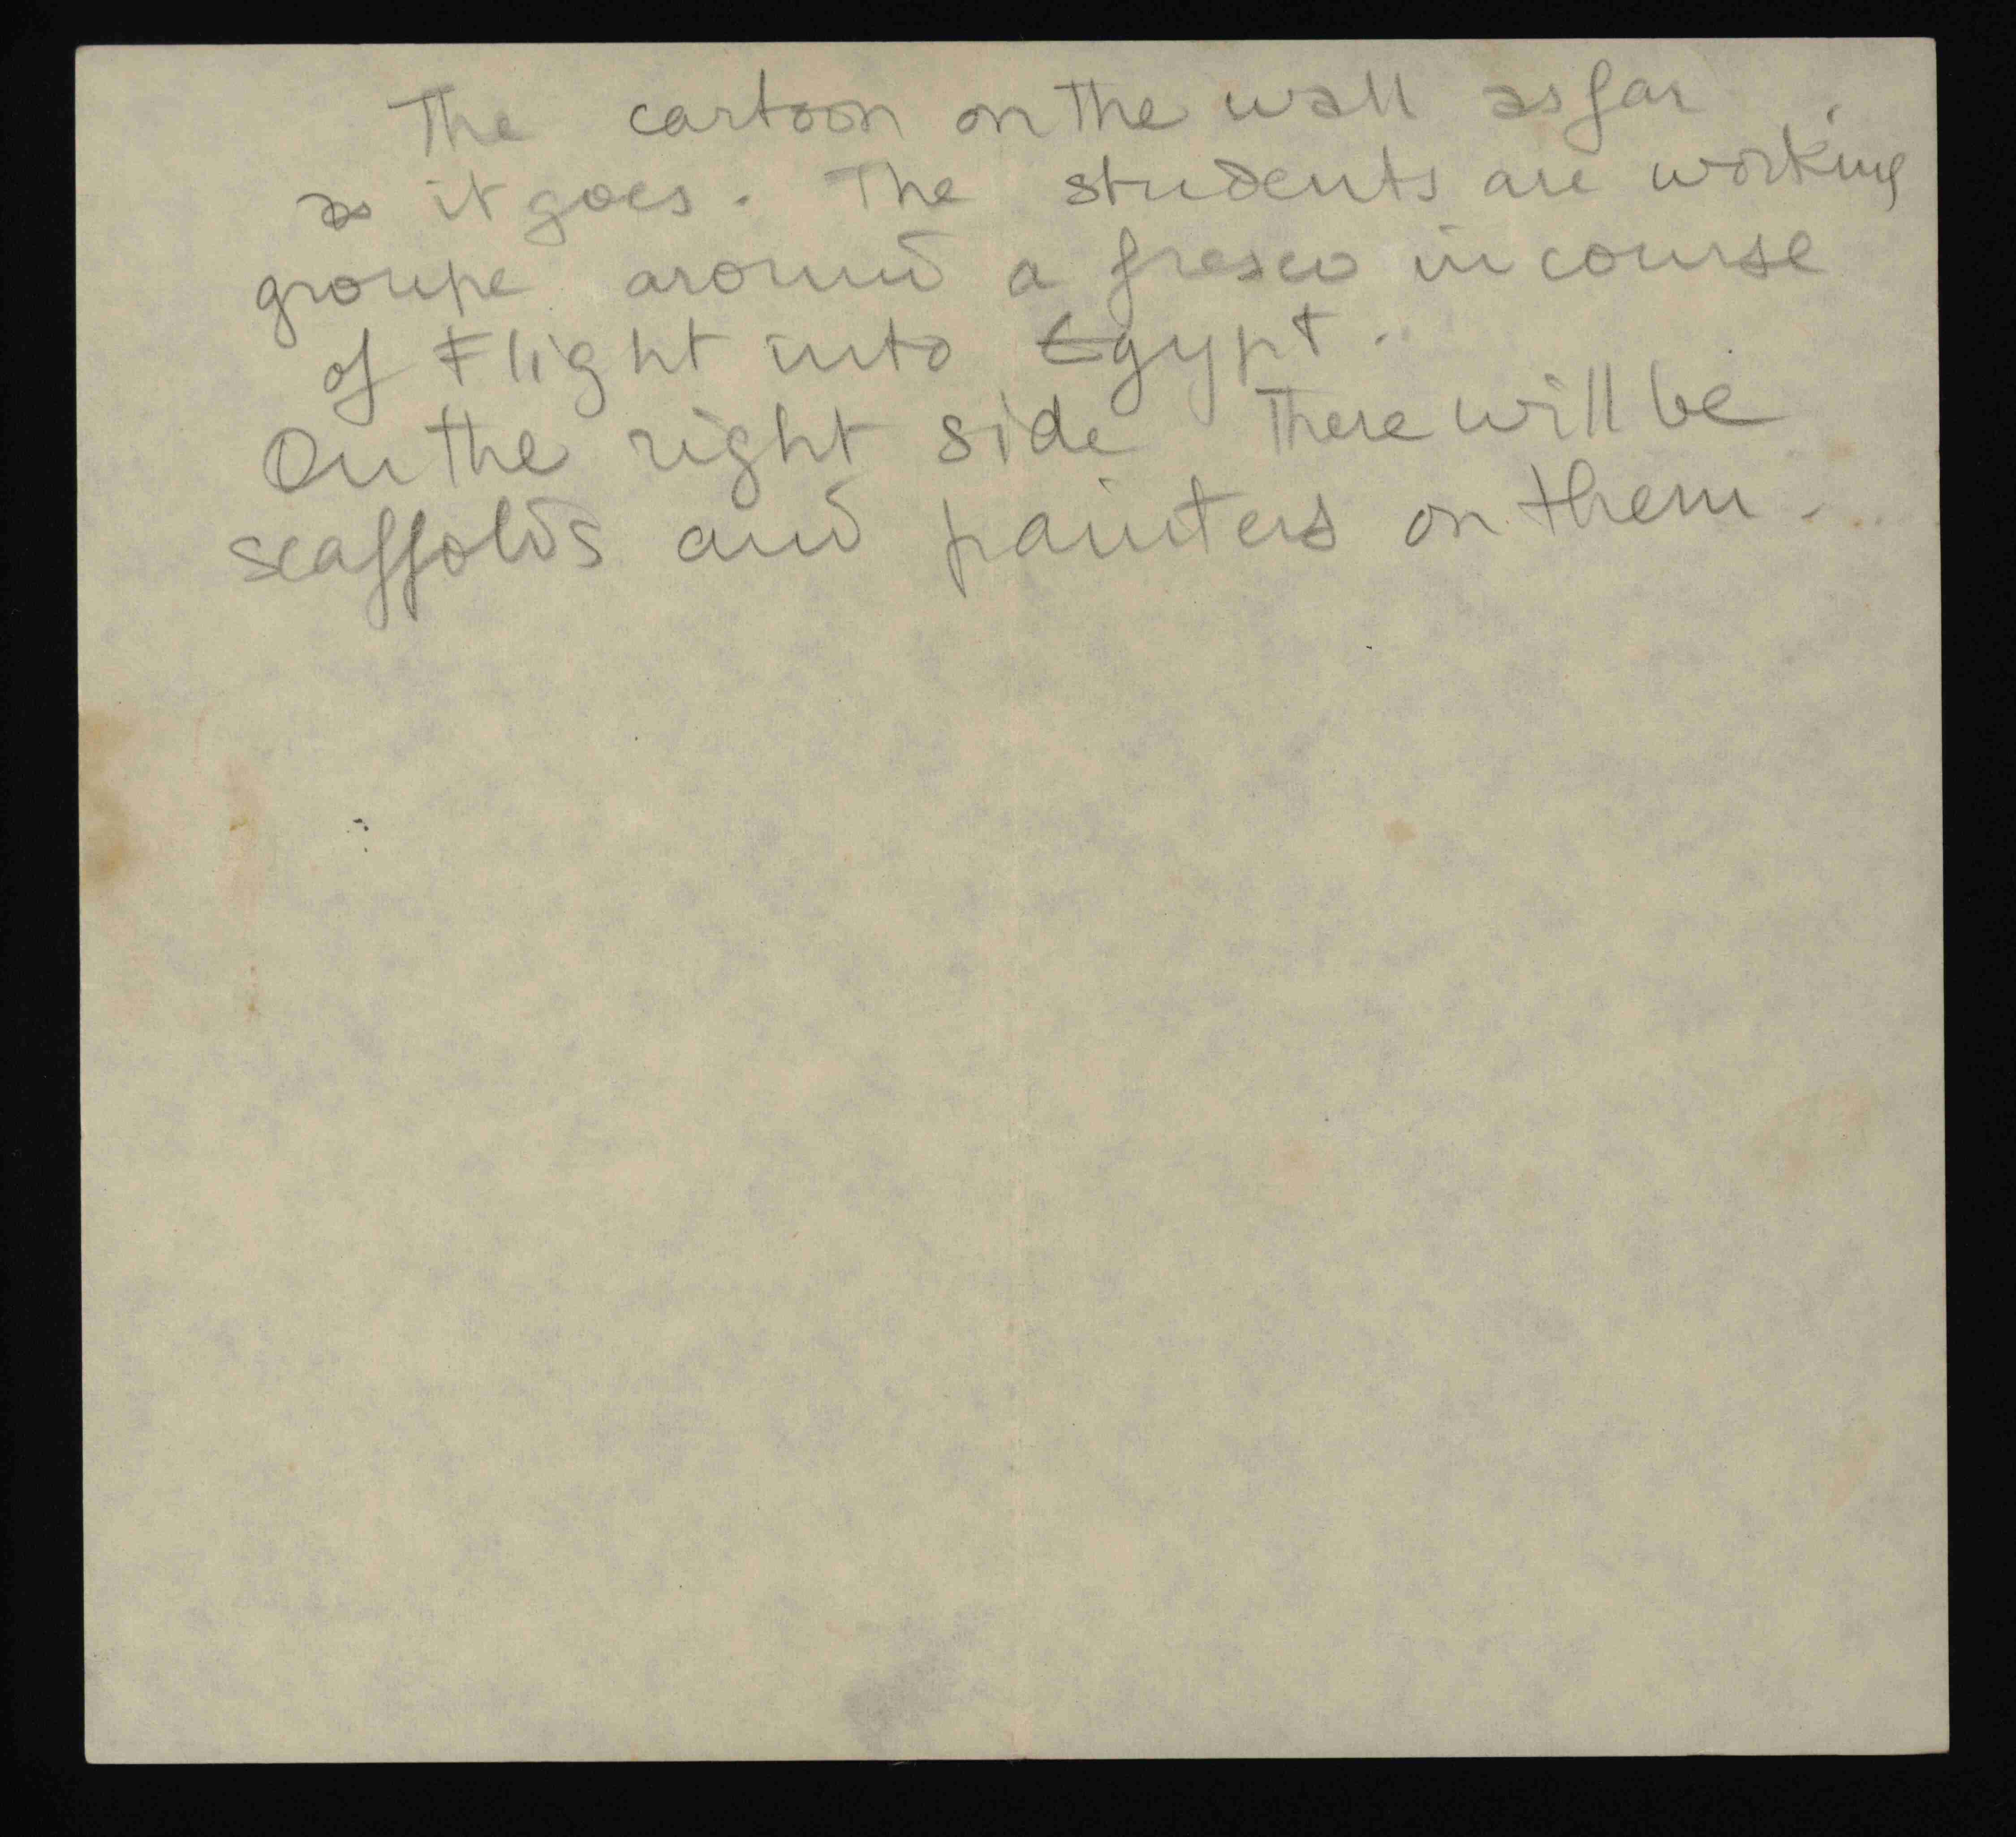 The cartoon on the wall as far
as it goes. The students are working
groupe around a fresco in course
of Flight into Egypt.
On the right side There will be
scaffolds and painters on them.